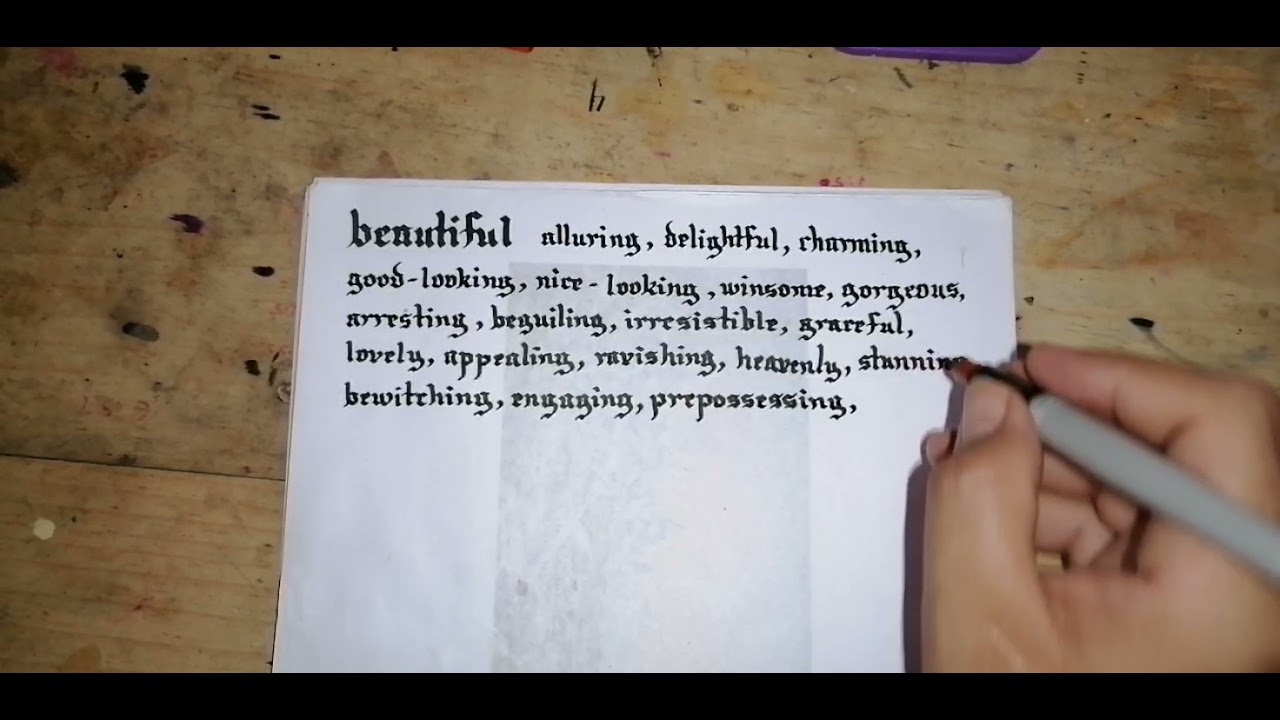 beautiful alluring, delightful, charming,
good-looking, nice-looking, winsome, gorgeous,
arresting, beguiling, irresistible, graceful,
lovely, appealing, ravishing, heavenly, stunning
bewitching, engaging, prepossessing,